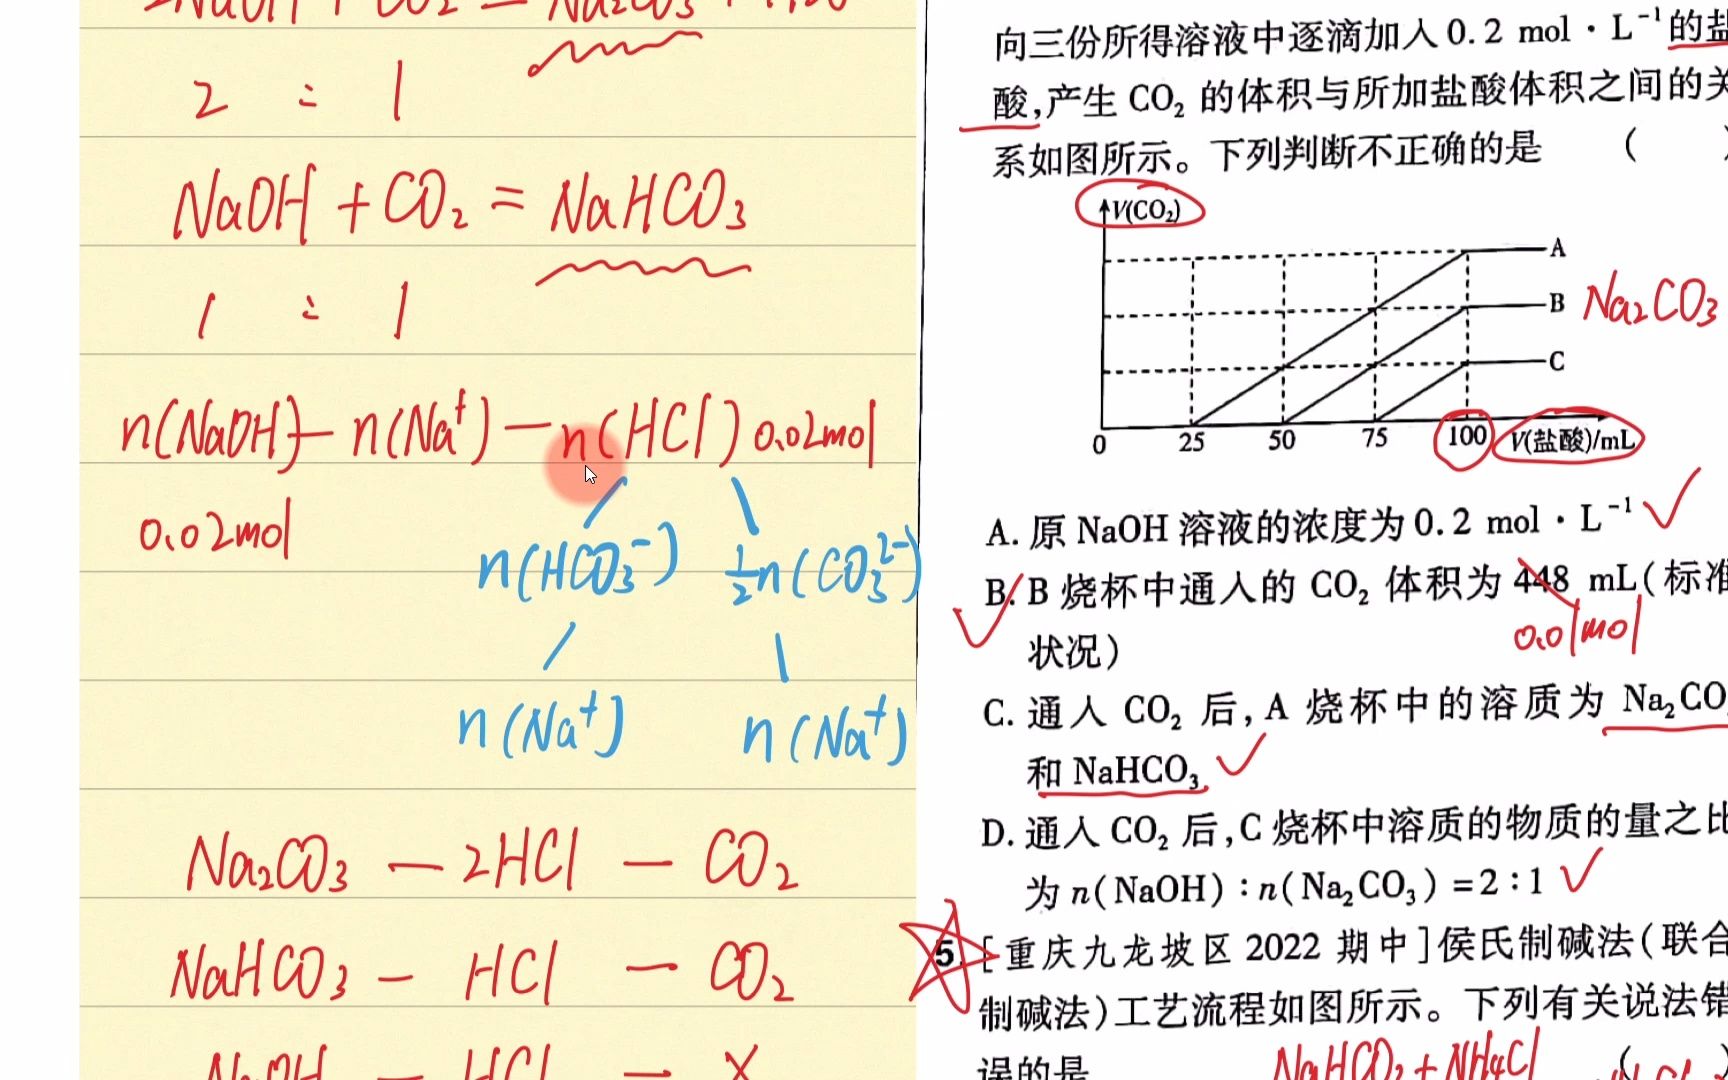 2NaOH + CO₂ = Na₂CO₃ + H₂O
2 : 1
NaOH + CO₂ = NaHCO₃
1 : 1
n(NaOH) — n(Na⁺) — n(HCl) 0.02mol
0.02mol
n(HCO₃⁻) ½n(CO₃²⁻)
n(Na⁺) n(Na⁺)
Na₂CO₃ — 2HCl — CO₂
NaHCO₃ — HCl — CO₂
NaOH — HCl — X
向三份所得溶液中逐滴加入0.2 mol·L⁻¹的盐
酸,产生 CO₂ 的体积与所加盐酸体积之间的关
系如图所示。下列判断不正确的是 ( )
V(CO₂)
A
B Na₂CO₃
C
0 25 50 75 100 V(盐酸)/mL
A. 原 NaOH 溶液的浓度为 0.2 mol·L⁻¹
B. B 烧杯中通入的 CO₂ 体积为 448 mL(标准
0.01mol
状况)
C. 通入 CO₂ 后,A 烧杯中的溶质为 Na₂CO₃
和 NaHCO₃
D. 通入 CO₂ 后,C 烧杯中溶质的物质的量之比
为 n(NaOH):n(Na₂CO₃)=2:1
5. [重庆九龙坡区 2022 期中]侯氏制碱法(联合
制碱法)工艺流程如图所示。下列有关说法错
误的是 (
NaHCO₃ + NH₄Cl